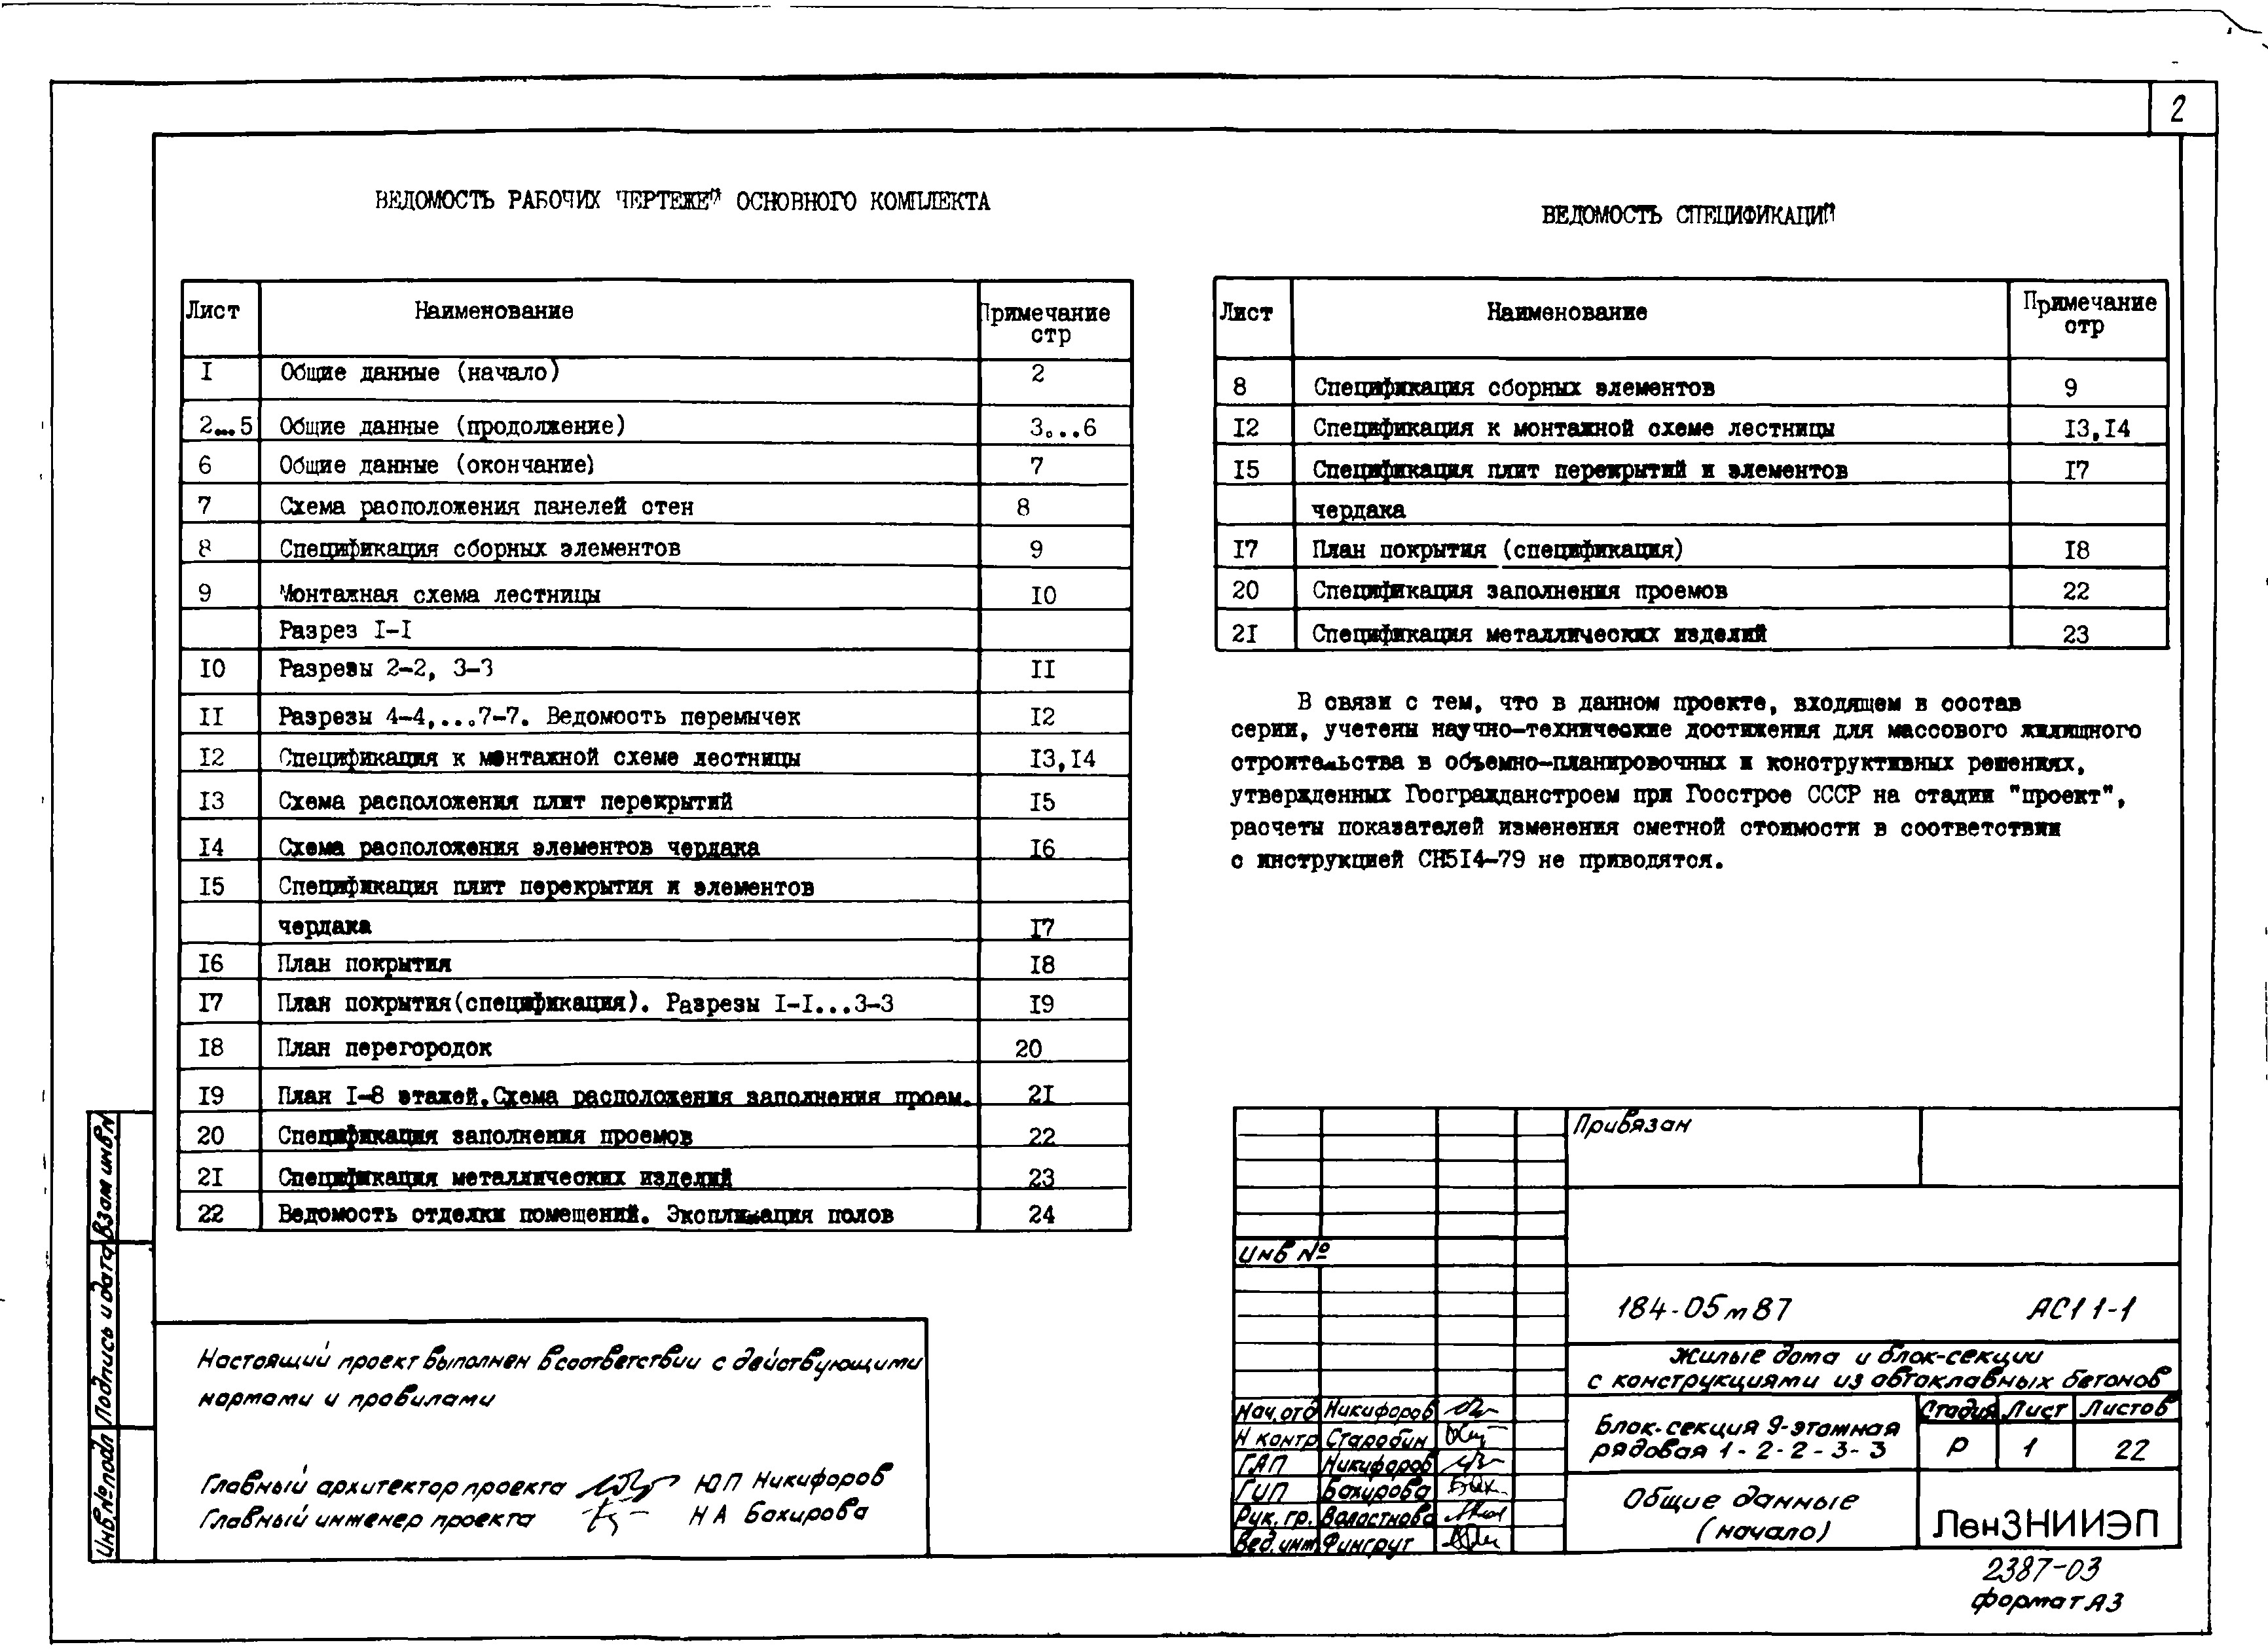 2
ВЕДОМОСТЬ РАБОЧИХ ЧЕРТЕЖЕЙ ОСНОВНОГО КОМПЛЕКТА
Лист Наименование Примечание
стр
I Общие данные (начало) 2
2...5 Общие данные (продолжение) 3...6
6 Общие данные (окончание) 7
7 Схема расположения панелей стен 8
8 Спецификация сборных элементов 9
9 Монтажная схема лестницы I0
Разрез I-I
I0 Разрезы 2-2, 3-3 II
II Разрезы 4-4,...7-7. Ведомость перемычек I2
I2 Спецификация к монтажной схеме лестницы I3,I4
I3 Схема расположения плит перекрытий I5
I4 Схема расположения элементов чердака I6
I5 Спецификация плит перекрытия и элементов
чердака I7
I6 План покрытия I8
I7 План покрытия(спецификация). Разрезы I-I...3-3 I9
I8 План перегородок 20
I9 План I-8 этажей.Схема расположения заполнения проем. 2I
20 Спецификация заполнения проемов 22
2I Спецификация металлических изделий 23
22 Ведомость отделки помещений. Экспликация полов 24
ВЕДОМОСТЬ СПЕЦИФИКАЦИЙ
Лист Наименование Примечание
стр
8 Спецификация сборных элементов 9
I2 Спецификация к монтажной схеме лестницы I3,I4
I5 Спецификация плит перекрытий и элементов I7
чердака
I7 План покрытия (спецификация) I8
20 Спецификация заполнения проемов 22
2I Спецификация металлических изделий 23
В связи с тем, что в данном проекте, входящем в состав
серии, учетены научно-технические достижения для массового жилищного
строительства в объемно-планировочных и конструктивных решениях,
утвержденных Госгражданстроем при Госстрое СССР на стадии "проект",
расчеты показателей изменения сметной стоимости в соответствии
с инструкцией СН5I4-79 не приводятся.
Настоящий проект выполнен в соответствии с действующими
нормами и правилами
Главный архитектор проекта Ю П Никифоров
Главный инженер проекта Н А Бахирова
Инв.№подл Подпись и дата Взам инв N
Привязан
Инв №
184-05м87 АС11-1
Жилые дома и блок-секции
с конструкциями из автоклавных бетонов
Нач.отд Никифоров
Н контр Старобин
ГАП Никифоров
ГИП Бахирова
Рук. гр. Валастнова
Вед.инж Фингрут
Блок-секция 9-этажная
рядовая 1-2-2-3-3
Стадия Лист Листов
Р 1 22
Общие данные
(начало)
ЛенЗНИИЭП
2387-03
формат А3